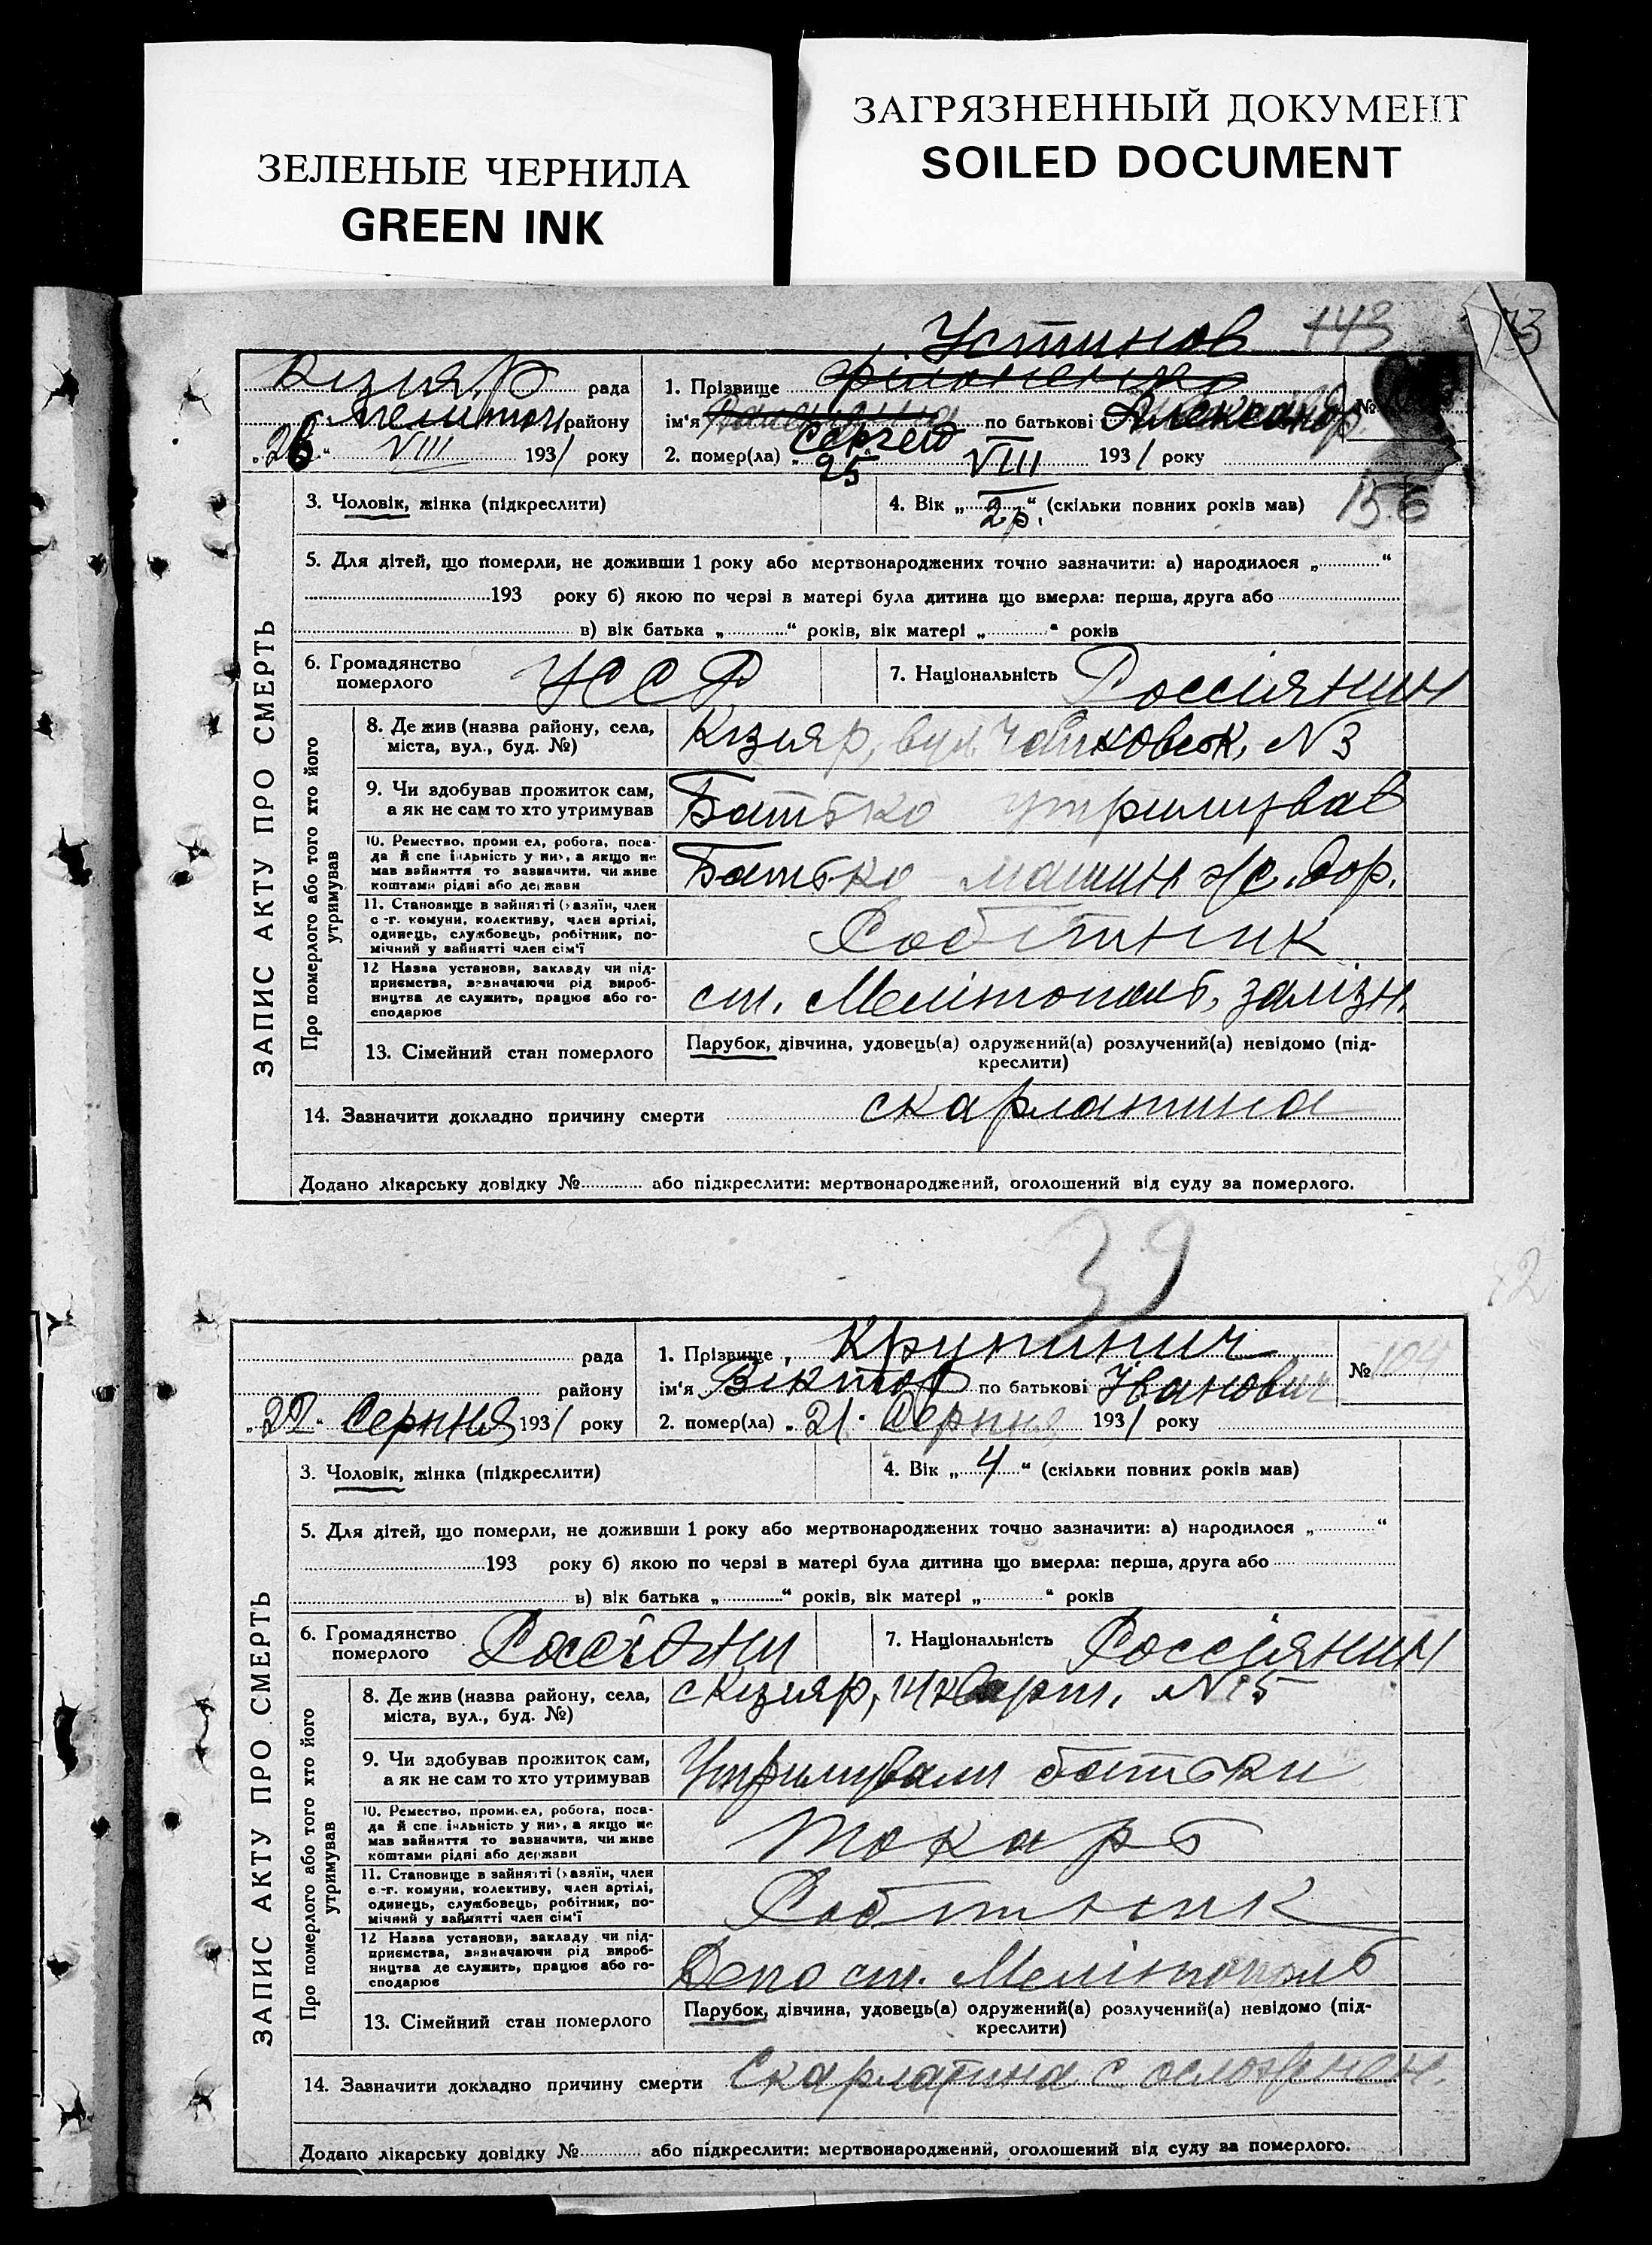 ЗЕЛЕНЫЕ ЧЕРНИЛА
GREEN INK
ЗАГРЯЗНЕННЫЙ ДОКУМЕНТ
SOILED DOCUMENT
Устинов 143
Кізияр рада 1. Прізвище №
району ім'я Сергей по батькові Александр.
„26“ VIII 1931 року 2. помер(ла) „25 VIII 1931 року
3. Чоловік, жінка (підкреслити) 4. Вік „2 р.“ (скільки повних років мав) 156
5. Для дітей, що померли, не доживши 1 року або мертвонароджених точно зазначити: а) народилося „ “
193 року б) якою по черзі в матері була дитина що вмерла: перша, друга або
в) вік батька „ “ років, вік матері „ “ років
ЗАПИС АКТУ ПРО СМЕРТЬ
6. Громадянство померлого УССР 7. Національність Россіянин
Про померлого або того хто його утримував
8. Де жив (назва району, села,
міста, вул., буд. №)
Кізияр, вул. №3
9. Чи здобував прожиток сам,
а як не сам то хто утримував
Батько утримував
10. Ремество, промисел, робота, поса-
да й спеціальність у них, а якщо не
мав зайняття то зазначити, чи живе
коштами рідні або держави
Батько машин. ж/с. дор.
11. Становище в зайнятті (хазяїн, член
с.-г. комуни, колективу, член артілі,
одинець, службовець, робітник, по-
мічний у зайнятті член сім'ї
Робітник
12 Назва установи, закладу чи під-
приємства, зазначаючи рід вироб-
ництва де служить, працює або го-
сподарює
ст. Мелітополь, залізн.
13. Сімейний стан померлого Парубок, дівчина, удовець(а) одружений(а) розлучений(а) невідомо (під-
креслити)
14. Зазначити докладно причину смерти скарлатина
Додано лікарську довідку № або підкреслити: мертвонароджений, оголошений від суду за померлого.
39
рада 1. Прізвище Крупинич № 104
району ім'я Віктор по батькові Иванович
„22“ Серпня 1931 року 2. помер(ла) „21“ Серпня 1931 року
3. Чоловік, жінка (підкреслити) 4. Вік „4“ (скільки повних років мав)
5. Для дітей, що померли, не доживши 1 року або мертвонароджених точно зазначити: а) народилося „ “
193 року б) якою по черзі в матері була дитина що вмерла: перша, друга або
в) вік батька „ “ років, вік матері „ “ років
ЗАПИС АКТУ ПРО СМЕРТЬ
6. Громадянство померлого 7. Національність Россіянин
Про померлого або того хто його утримував
8. Де жив (назва району, села,
міста, вул., буд. №)
с Кізияр, кварт. №5
9. Чи здобував прожиток сам,
а як не сам то хто утримував
Утримували батьки
10. Ремество, промисел, робота, поса-
да й спеціальність у них, а якщо не
мав зайняття то зазначити, чи живе
коштами рідні або держави
Токарь
11. Становище в зайнятті (хазяїн, член
с.-г. комуни, колективу, член артілі,
одинець, службовець, робітник, по-
мічний у зайнятті член сім'ї
Робітник
12 Назва установи, закладу чи під-
приємства, зазначаючи рід вироб-
ництва де служить, працює або го-
сподарює
Депо ст. Мелітополь
13. Сімейний стан померлого Парубок, дівчина, удовець(а) одружений(а) розлучений(а) невідомо (під-
креслити)
14. Зазначити докладно причину смерти Скарлатина с осложнен.
Додано лікарську довідку № або підкреслити: мертвонароджений, оголошений від суду за померлого.